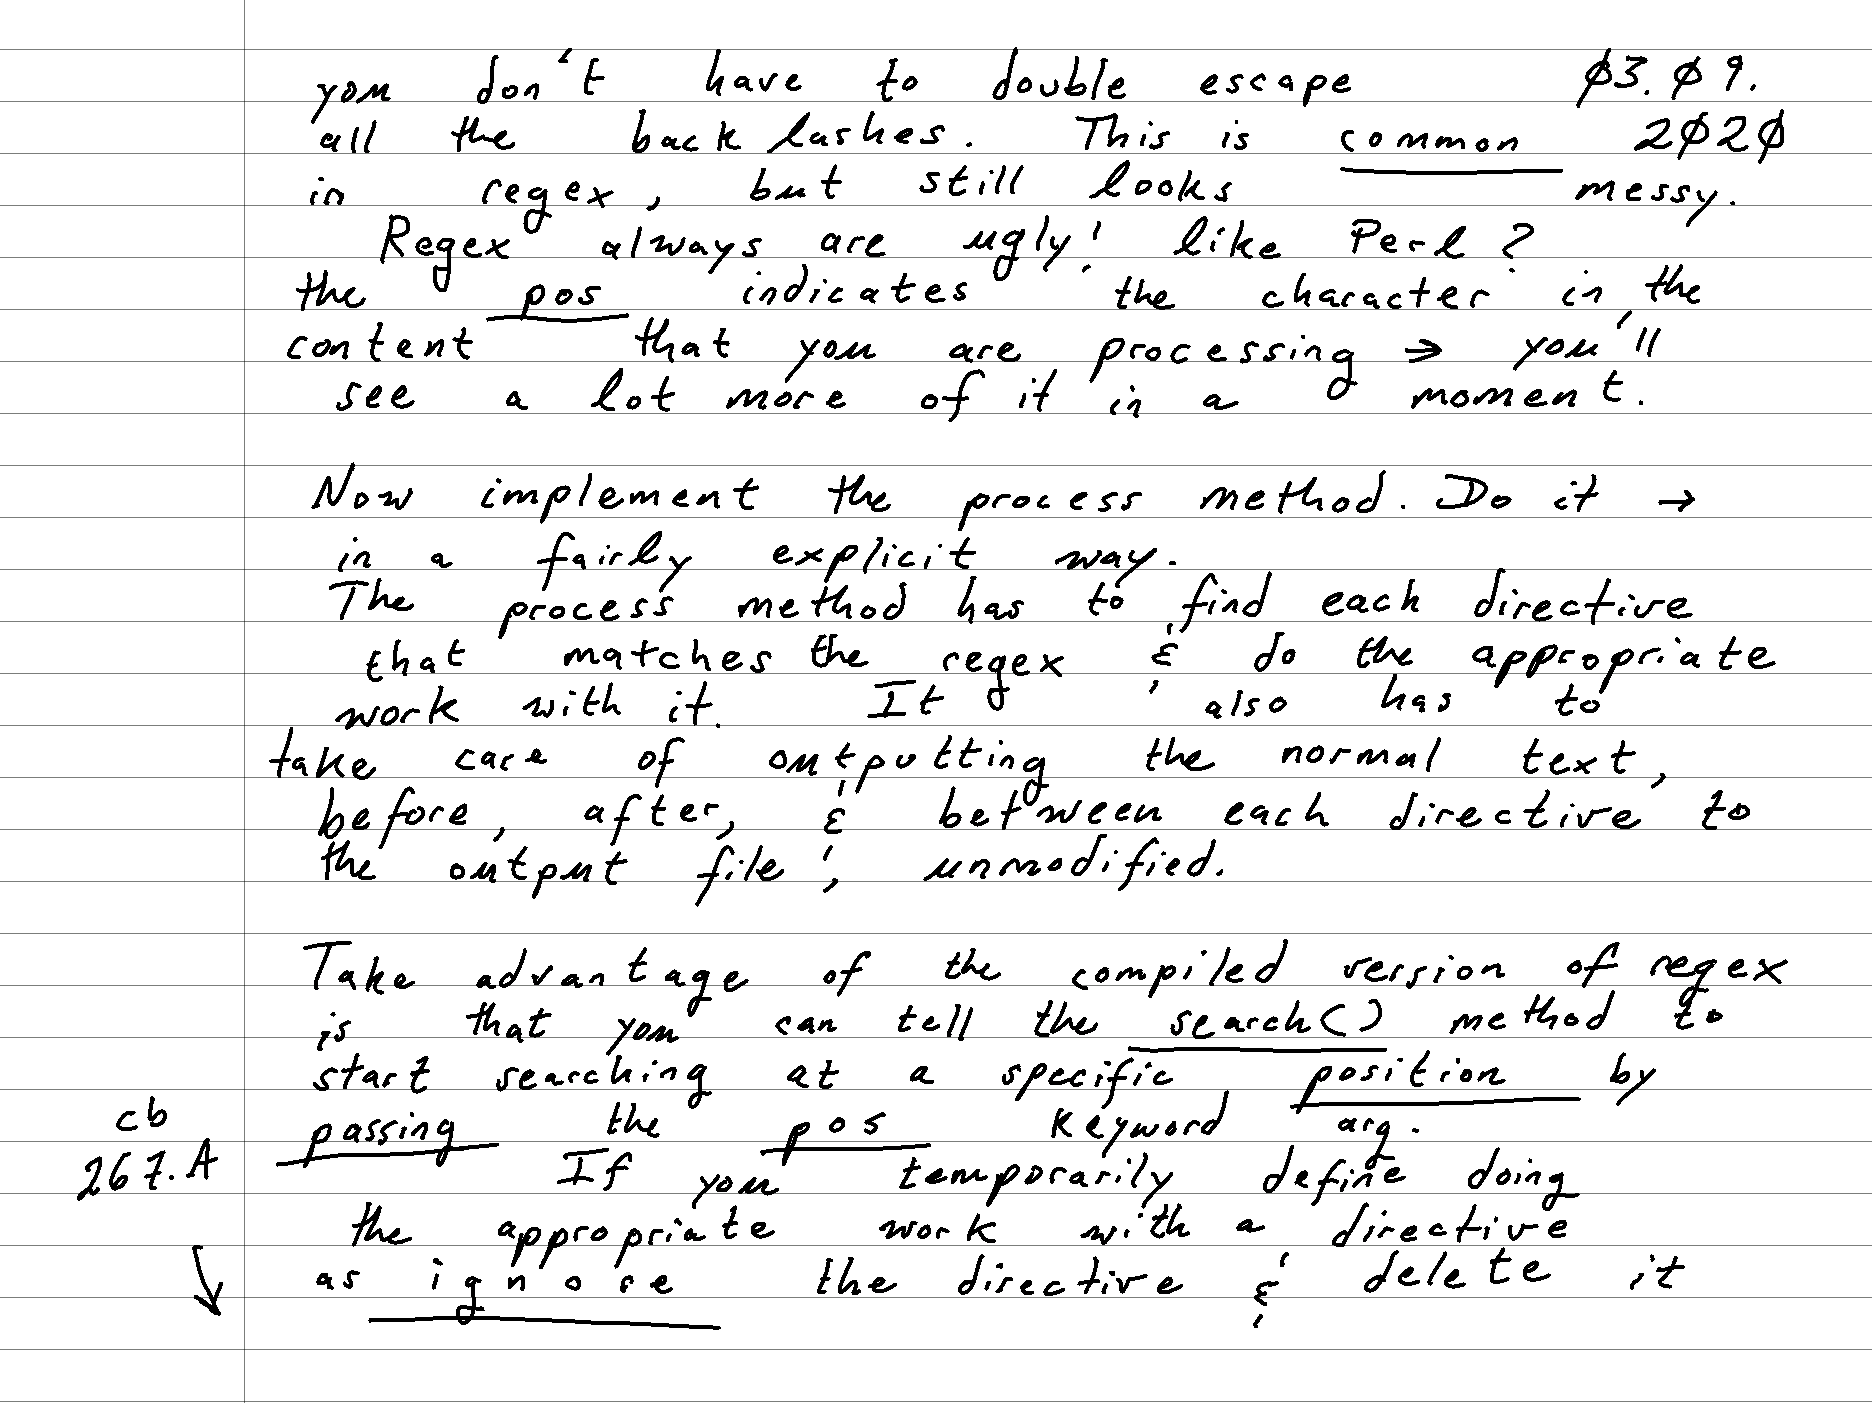 you don't have to double escape ø3. ø9.
all the back lashes. This is common 2ø2ø
in regex, but still looks messy.
Regex always are ugly! like Perl?
the pos indicates the character in the
content that you are processing → you'll
see a lot more of it in a moment.
Now implement the process method. Do it →
in a fairly explicit way.
The process method has to find each directive
that matches the regex & do the appropriate
work with it. It also has to
take care of outputting the normal text,
before, after, & between each directive to
the output file, unmodified.
Take advantage of the compiled version of regex
is that you can tell the search() method to
start searching at a specific position by
cb
passing the pos keyword arg.
267.A If you temporarily define doing
the appropriate work with a directive
↓ as ignore the directive & delete it